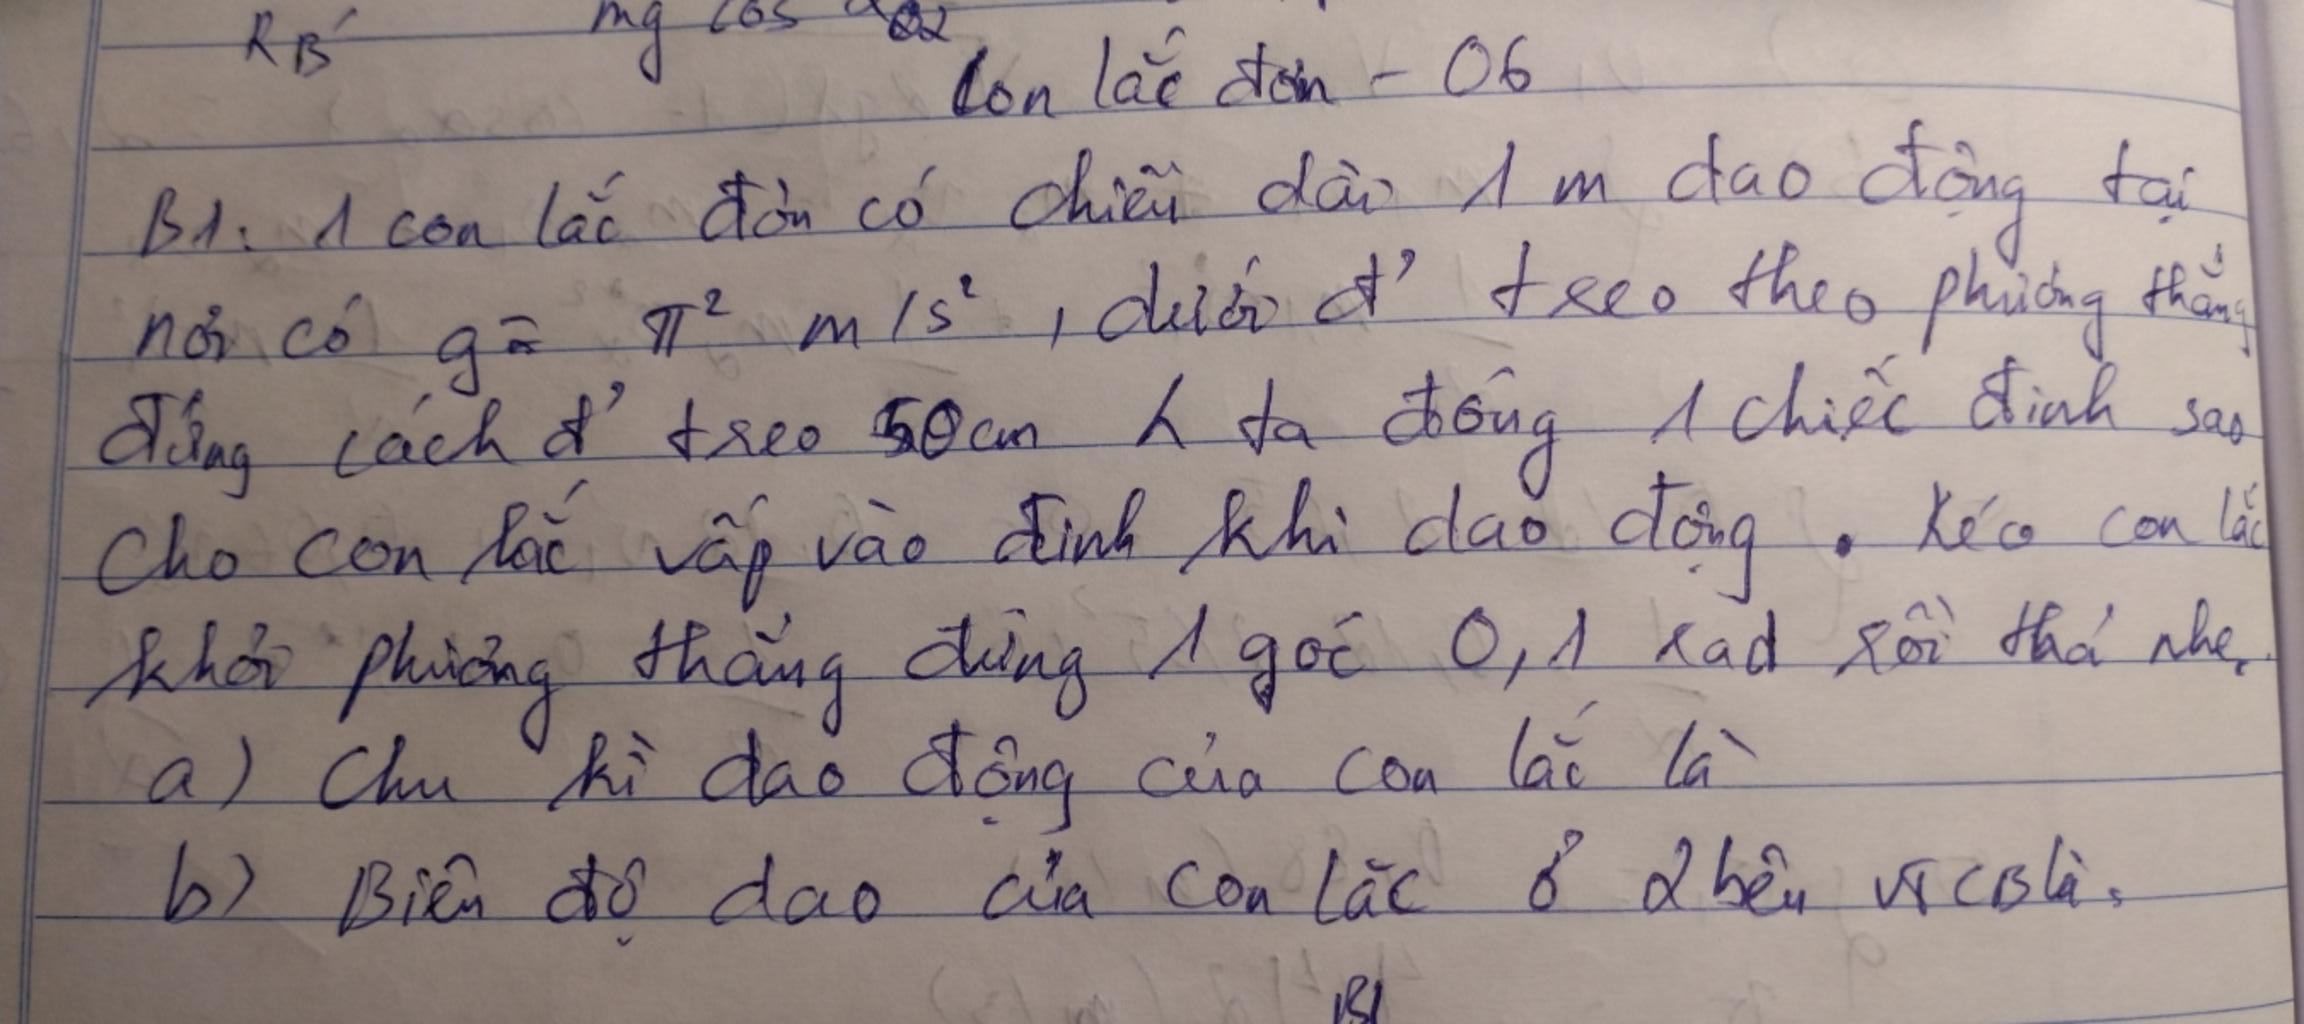 RB mg cos α02
Con lắc đơn - 06
B1. 1 con lắc đơn có chiều dài 1 m dao động tại
nơi có g = π² m/s², dưới đ' treo theo phương thẳng
đứng cách đ' treo 50cm ta đóng 1 chiếc đinh sao
cho con lắc vấp vào đinh khi dao động. Kéo con lắc
khỏi phương thẳng đứng 1 góc 0,1 rad rồi thả nhẹ.
a) Chu kì dao động của con lắc là
b) Biên độ dao của con lắc ở 2 bên VTCB là.
B1